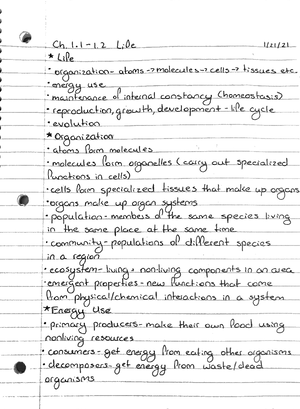 Ch. 1.1-1.2 Life 1/21/21
* Life
· organization- atoms → molecules → cells → tissues etc.
· energy use
· maintenance of internal constancy (homeostasis)
· reproduction, growth, development - life cycle
· evolution
* Organization
· atoms form molecules
· molecules form organelles (carry out specialized
functions in cells)
· cells form specialized tissues that make up organs
· organs make up organ systems
· population - members of the same species living
in the same place at the same time
· community - populations of different species
in a region
· ecosystem - living + nonliving components in an area
· emergent properties - new functions that come
from physical/chemical interactions in a system
* Energy Use
· primary producers - make their own food using
nonliving resources
· consumers - get energy from eating other organisms
· decomposers - get energy from waste/dead
organisms